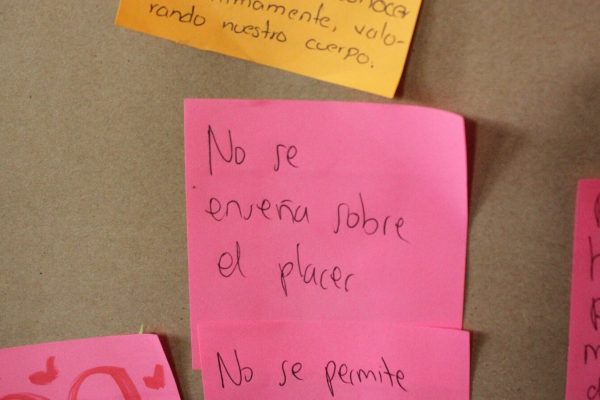 timamente, valo-
rando nuestro cuerpo.
No se
enseña sobre
el placer
No se permite